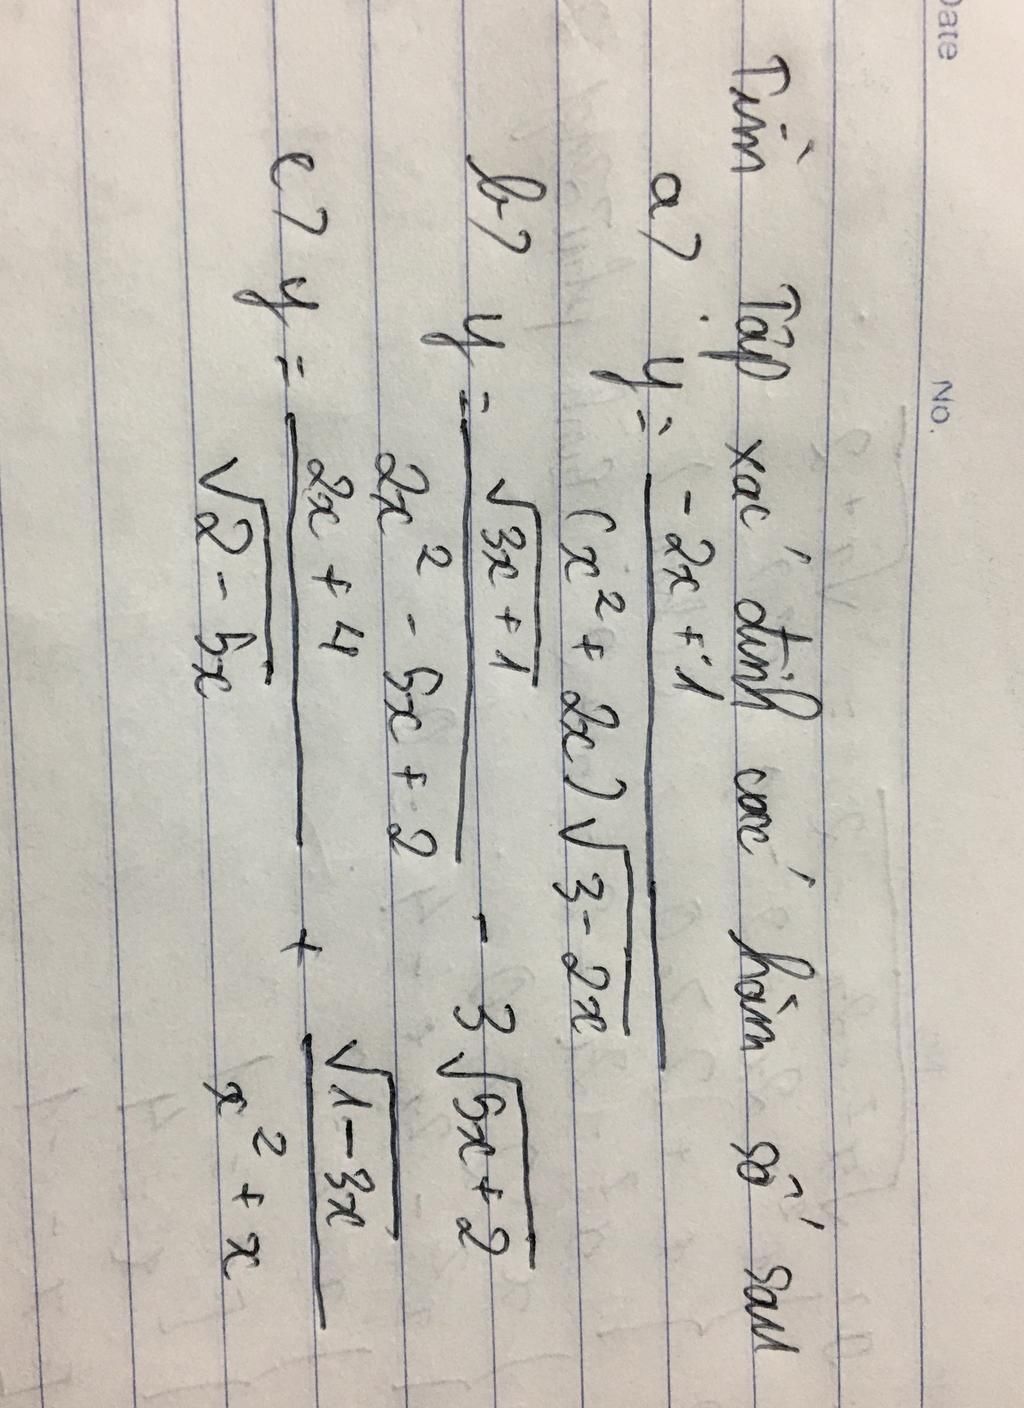 Date
No.
Tìm Tập xác định các hàm số sau
a) y = -2x + 1
(x² + 2x) √3 - 2x
b) y = √3x + 1 - 3√5x + 2
2x² - 5x + 2
c) y = 2x + 4 + √1 - 3x
√2 - 5x x² + x